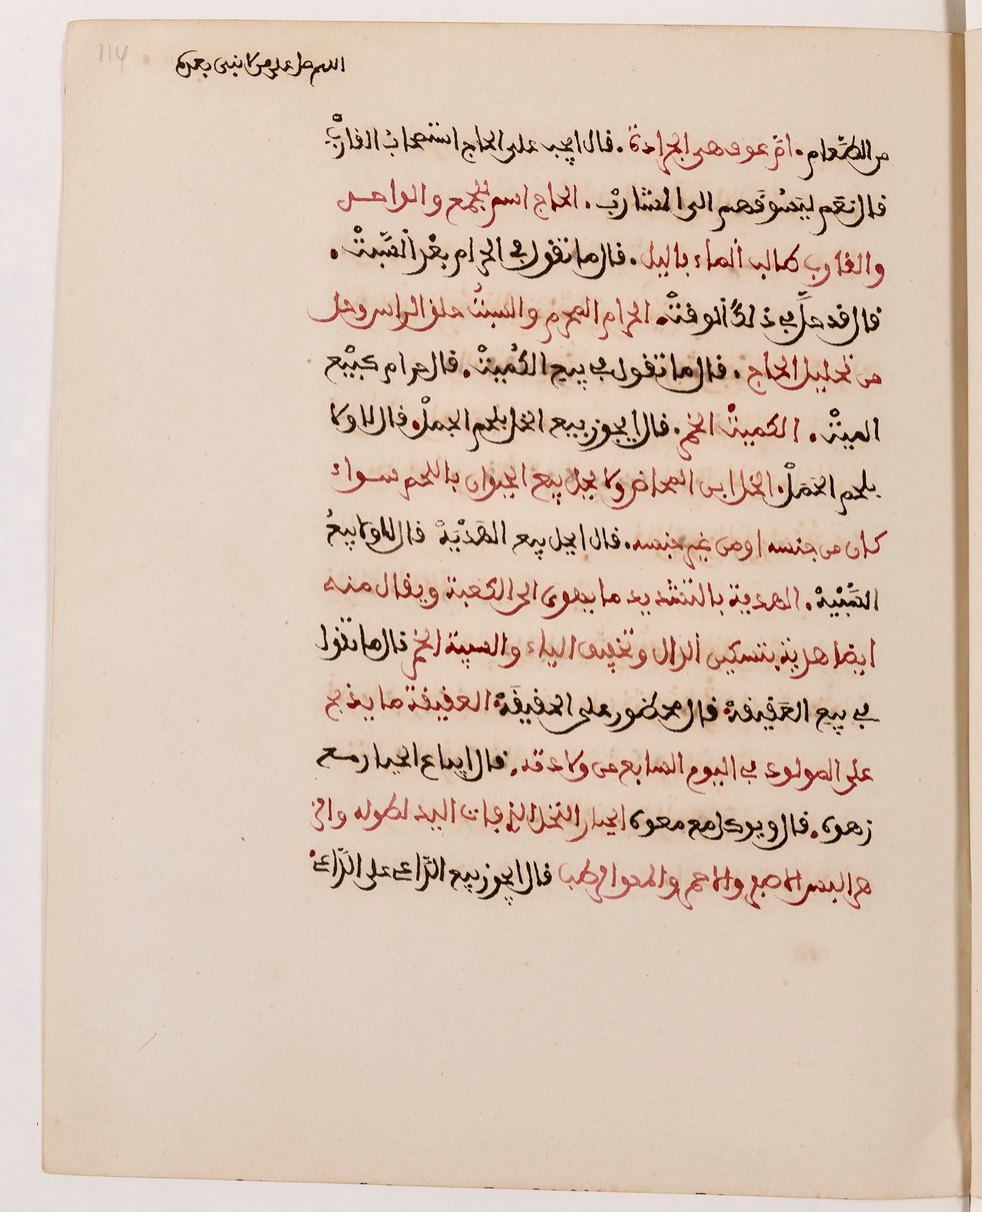 اللهم صل على من لا نبي بعده
من الطَّعام. ام عوف هي الجرادة. قال ايجب على الحاج استصحابُ القاربْ
قال نعم ليَسُوقَهم الى المشاربْ. الحاج اسم للجمع والواحد
والقارب طالب الماء بالليل. قال ما تقول في الحرام بعْد السَّبتْ.
قال قد حلَّ في ذلك الوقتْ. الحرام المحرم والسبتُ حلق الراس وحل
من تحليل الحاج. قال ما تقول في بيع الكُميتْ. قال حرام كبيْع
الميتْ. الكميتْ الخمر. قال ايجوز بيع الخل بلحم الجملْ. قال لا ولا
بلحم الحَمَلْ. الخل ابن المخاض ولا يحل بيع الحيوان باللحم سواء
كان من جنسه او من غير جنسه. قال ايحل بيع الهَدْيَهْ قال لا ولا بيعُ
السَّبْيهْ. الهدية بالتشديد ما يهدى الى الكعبة ويقال منه
ايضا هدْية بتسكين الدال وتخفيف الياء والسبية الخمر قال ما تقول
في بيع العَقيقهْ قال محظور على الحقيقَهْ العقيقة ما يذبح
على المولود في اليوم السابع من ولادته. قال ايباع الجبار مع
زهوه. قال ويوكل مع معوه الجبار النخل الذي فات اليد لطوله والز
هر البسر الاصفر والاحمر والمعو الرطب قال ايجوز بيع الدَّاعي على الرَّاعي.